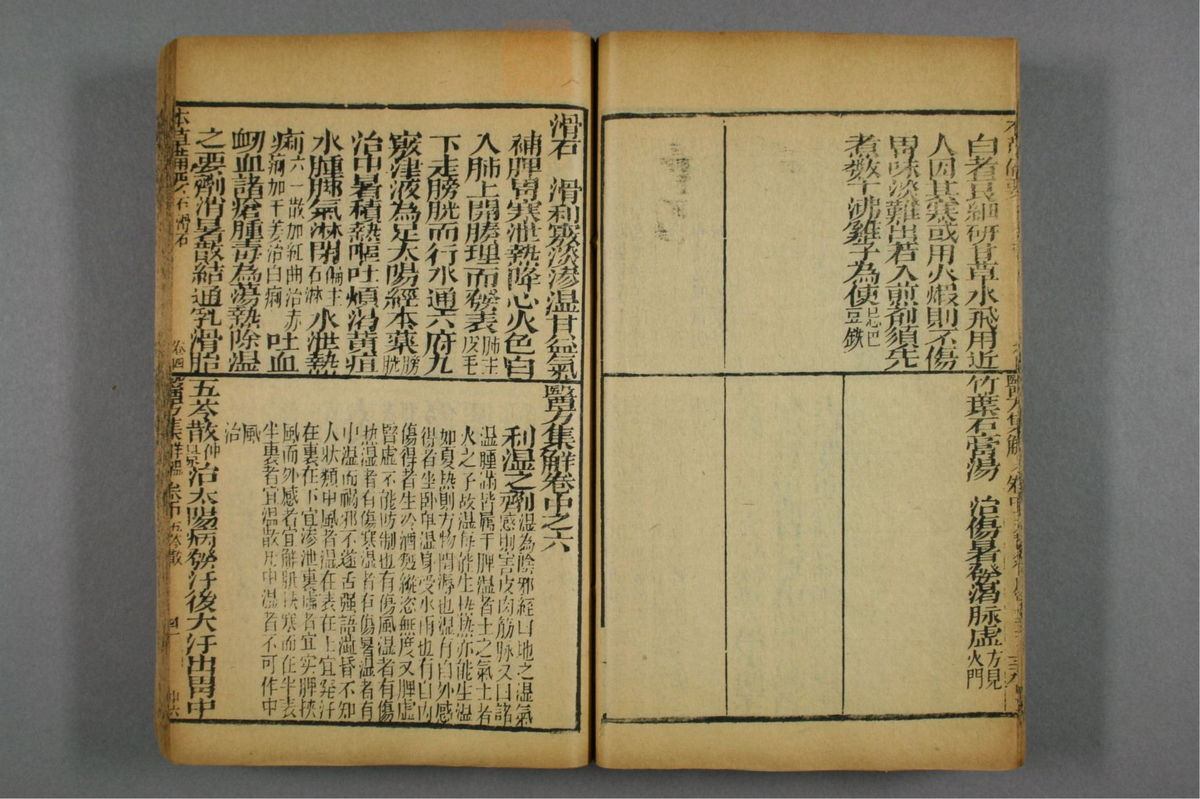 白者良細研甘草水飛用近
人因其寒或用火煅則不傷
胃味淡難出若入煎劑須先
煮數十沸雞子為使忌巴豆鐵
竹葉石膏湯 治傷暑發渴脉虛方見火門
滑石 滑利竅淡滲濕甘益氣
補脾胃寒泄熱降心火色白
入肺上開腠理而發表肺主皮毛
下走膀胱而行水通六府九
竅津液為足太陽經本藥膀胱
治中暑積熱嘔吐煩渴黃疸
水腫脚氣淋閉偏主石淋水泄熱
痢六一散加紅曲治赤痢加干姜治白痢吐血
衂血諸瘡腫毒為蕩熱除濕
之要劑消暑散結通乳滑胎
本草備要 石 滑石 卷四
醫方集解卷中之六
利濕之劑濕為陰邪經曰地之濕氣
感則害皮肉筋脉又曰諸
濕腫滿皆属于脾濕者土之氣土者
火之子故濕每能生熱熱亦能生濕
如夏熱則万物閏溽也濕有自外感
得者坐卧卑濕身受水雨也有自内
傷得者生冷酒麵縱恣無度又脾虛
腎虛不能防制也有傷風濕者有傷
熱濕者有傷寒濕者有傷暑濕者有
中濕而喎邪不遂舌强語澁昏不知
人狀類中風者濕在表在上宜發汗
在裏在下宜滲泄裏虛者宜实脾挾
風而外感者宜解肌挾寒而在半表
半裏者宜温散凡中濕者不可作中
風治
五苓散仲景治太陽病發汗後大汗出胃中
醫方集解 卷中 五苓散